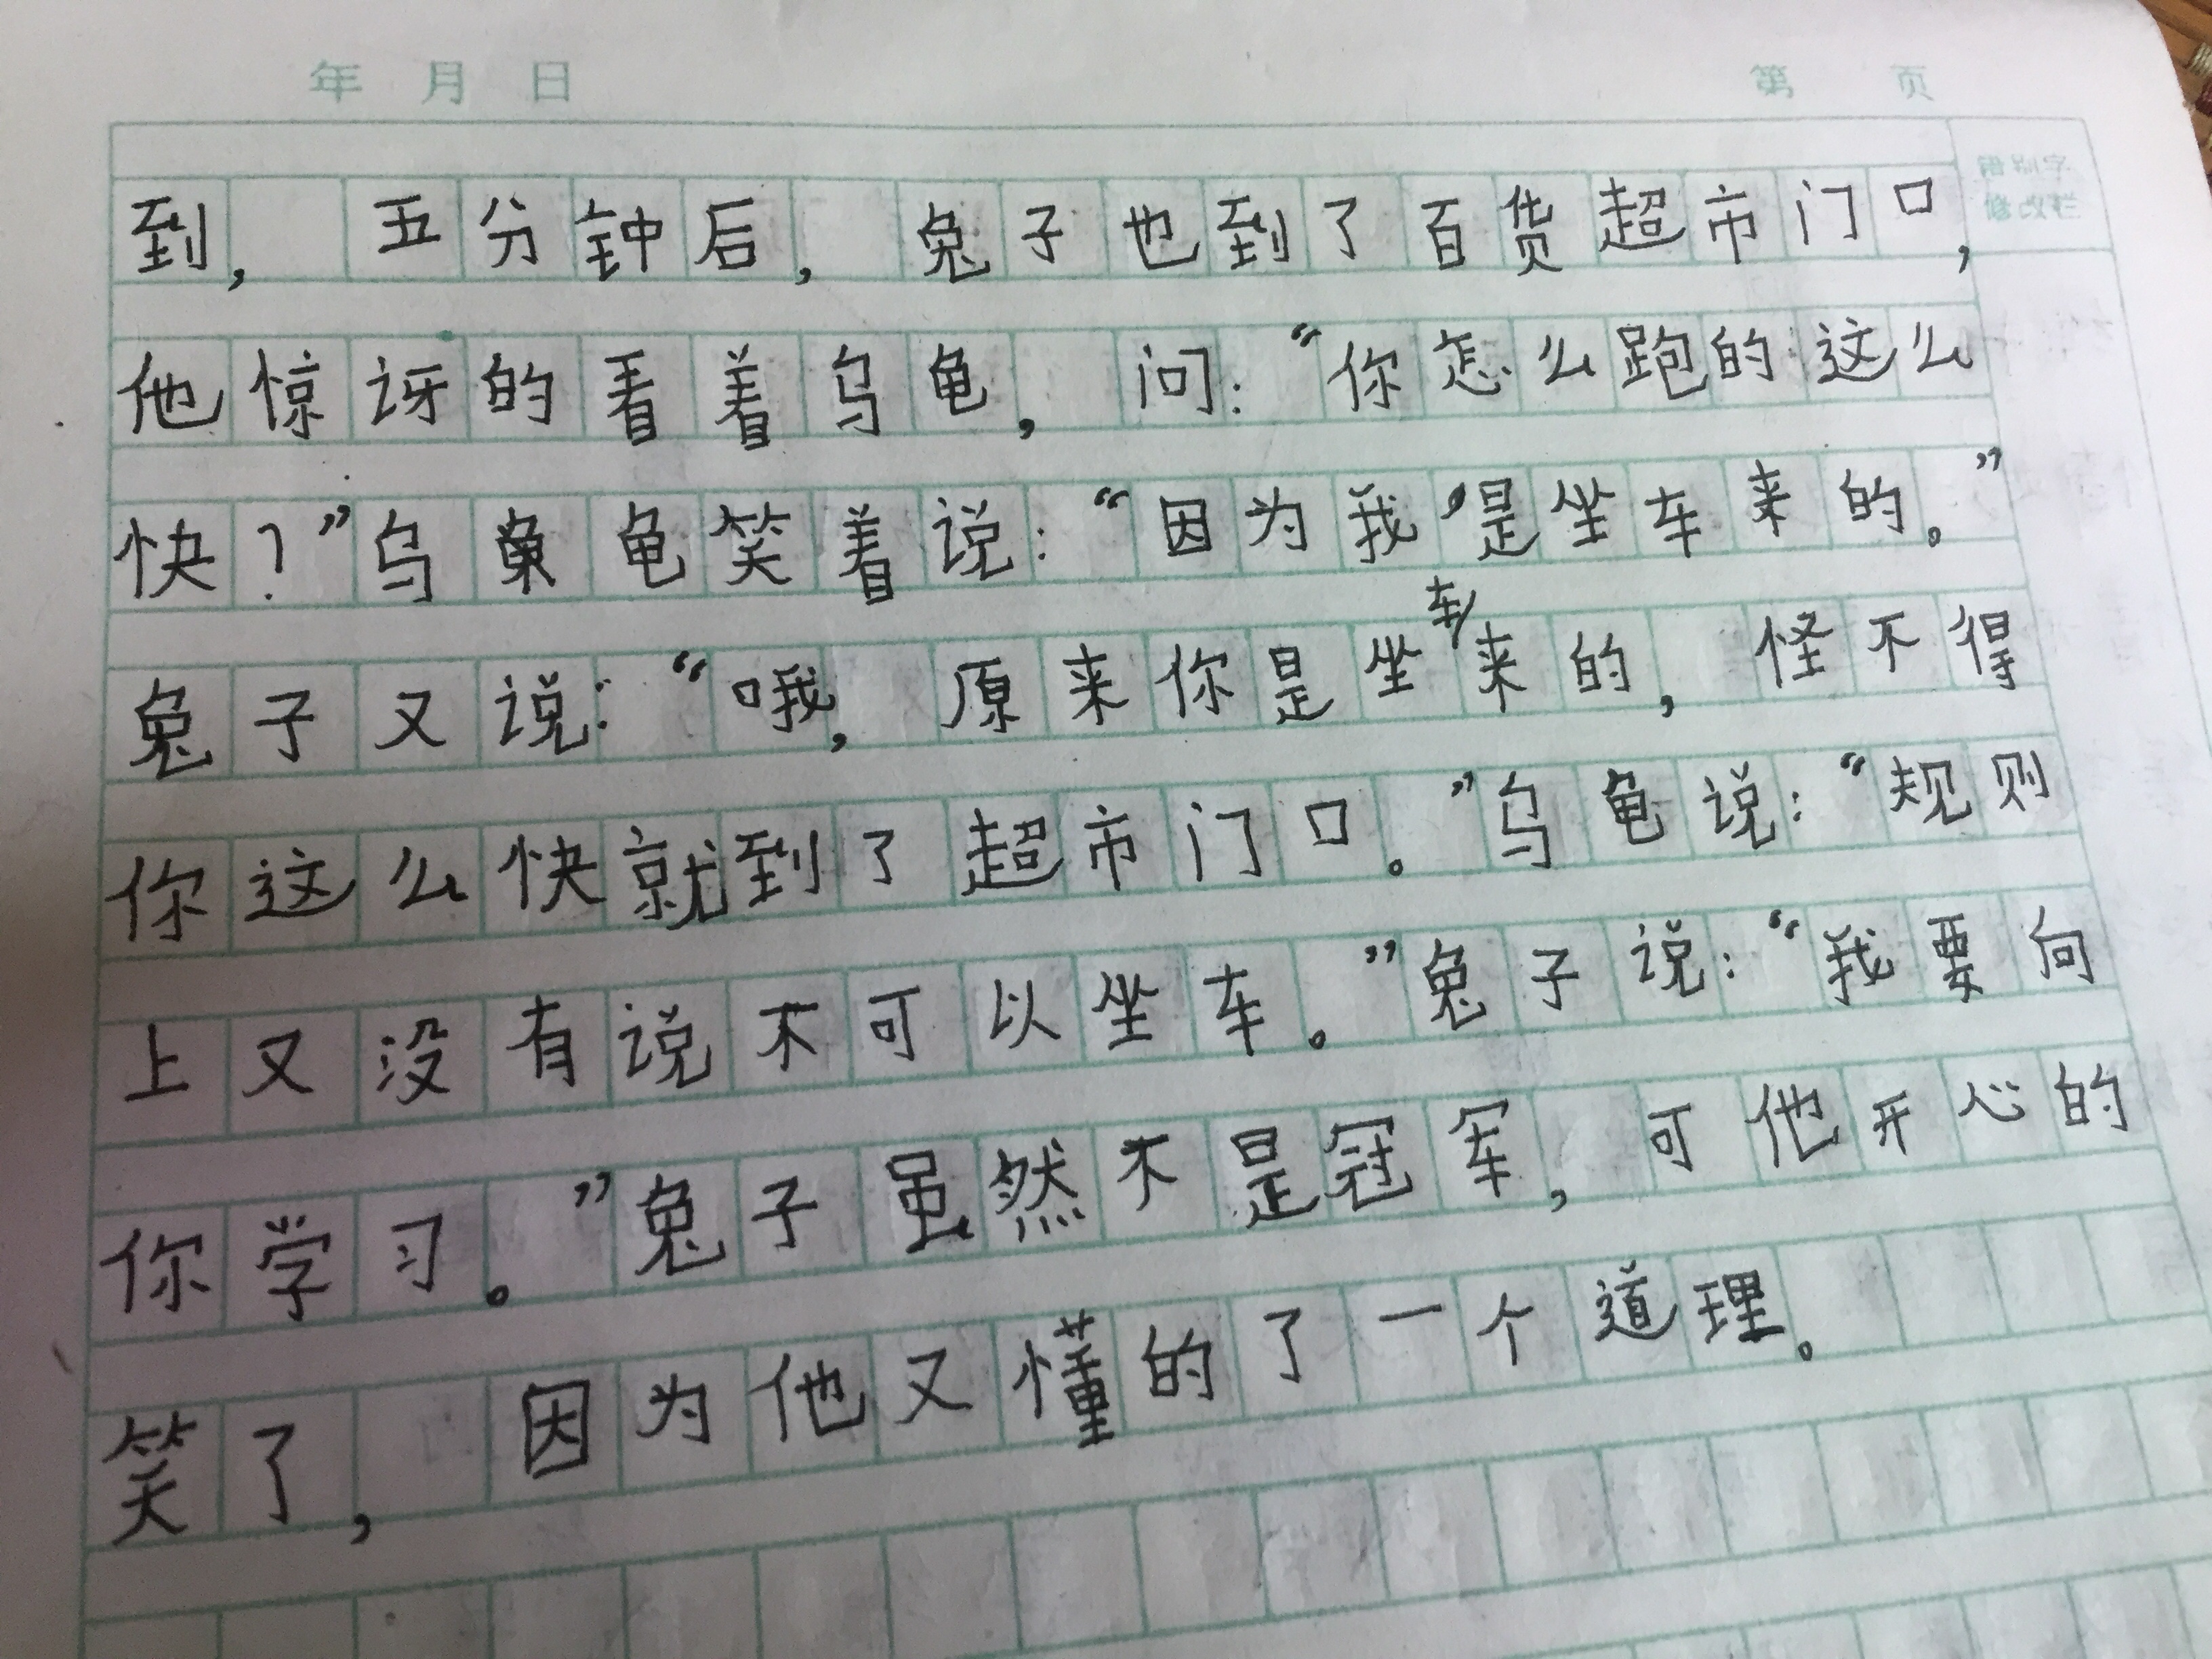 年 月 日
第 页
错别字
修改栏
到，五分钟后，兔子也到了百货超市门口，
他惊讶的看着乌龟，问：“你怎么跑的这么
快？”乌龟笑着说：“因为我是坐车来的。”
兔子又说：“哦，原来你是坐车来的，怪不得
你这么快就到了超市门口。”乌龟说：“规则
上又没有说不可以坐车。”兔子说：“我要向
你学习。”兔子虽然不是冠军，可他开心的
笑了，因为他又懂的了一个道理。